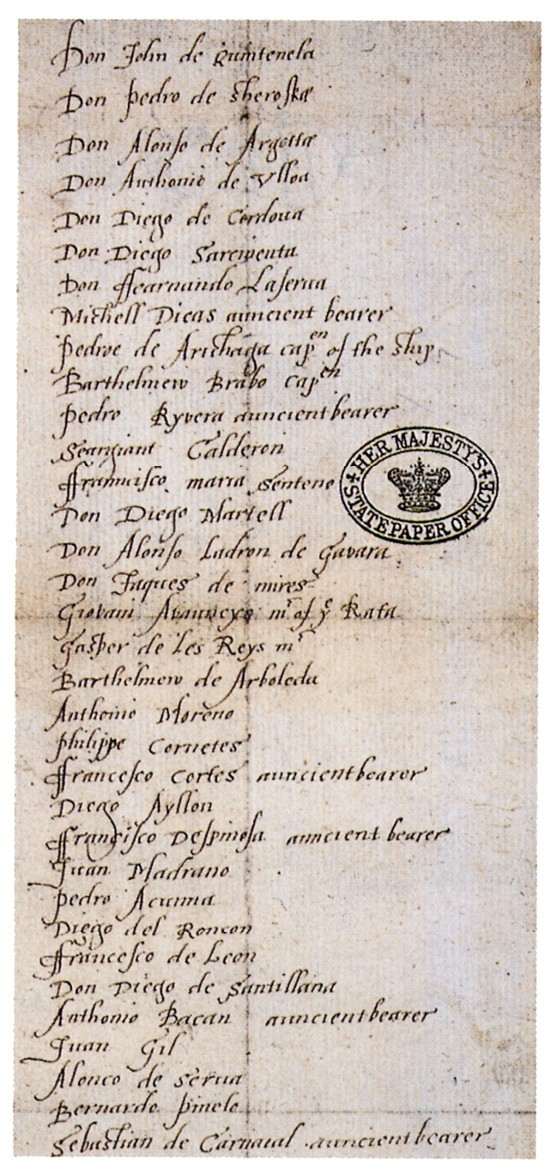 Don John de Quintenela
Don Pedro de Sheroskæ
Don Alonso de Argottæ
Don Anthonio de Ulloa
Don Diego de Cordoua
Don Diego Sarmenta
Don ffearnando Laserua
Michell Dicas auncient bearer
Pedroe de Arichaga capen of the ship
Barthelmew Brabo capen
Pedro Ryvera auncient bearer
Seargiant Calderon
ffrancisco maria Senteno
Don Diego Martell
Don Alonso Ladron de Gavara
Don Jaques de mires
Giovani mr of ye Rata
Gasper de les Reys mr
Barthelmew de Arboleda
Anthonio Moreno
Philippe Cornetes
ffrancesco Cortes auncientbearer
Diego Ayllon
ffrancisco Despinosa auncient bearer
Juan Madrano
Pedro Acunna
Diego del Roncon
ffrancesco de Leon
Don Diego de Santillana
Anthonio Bacan auncientbearer
Juan Gil
Alonco de Serua
Bernardo Pinelo
Sebastian de Carnaual auncientbearer
HER MAJESTY'S
STATE PAPER OFFICE